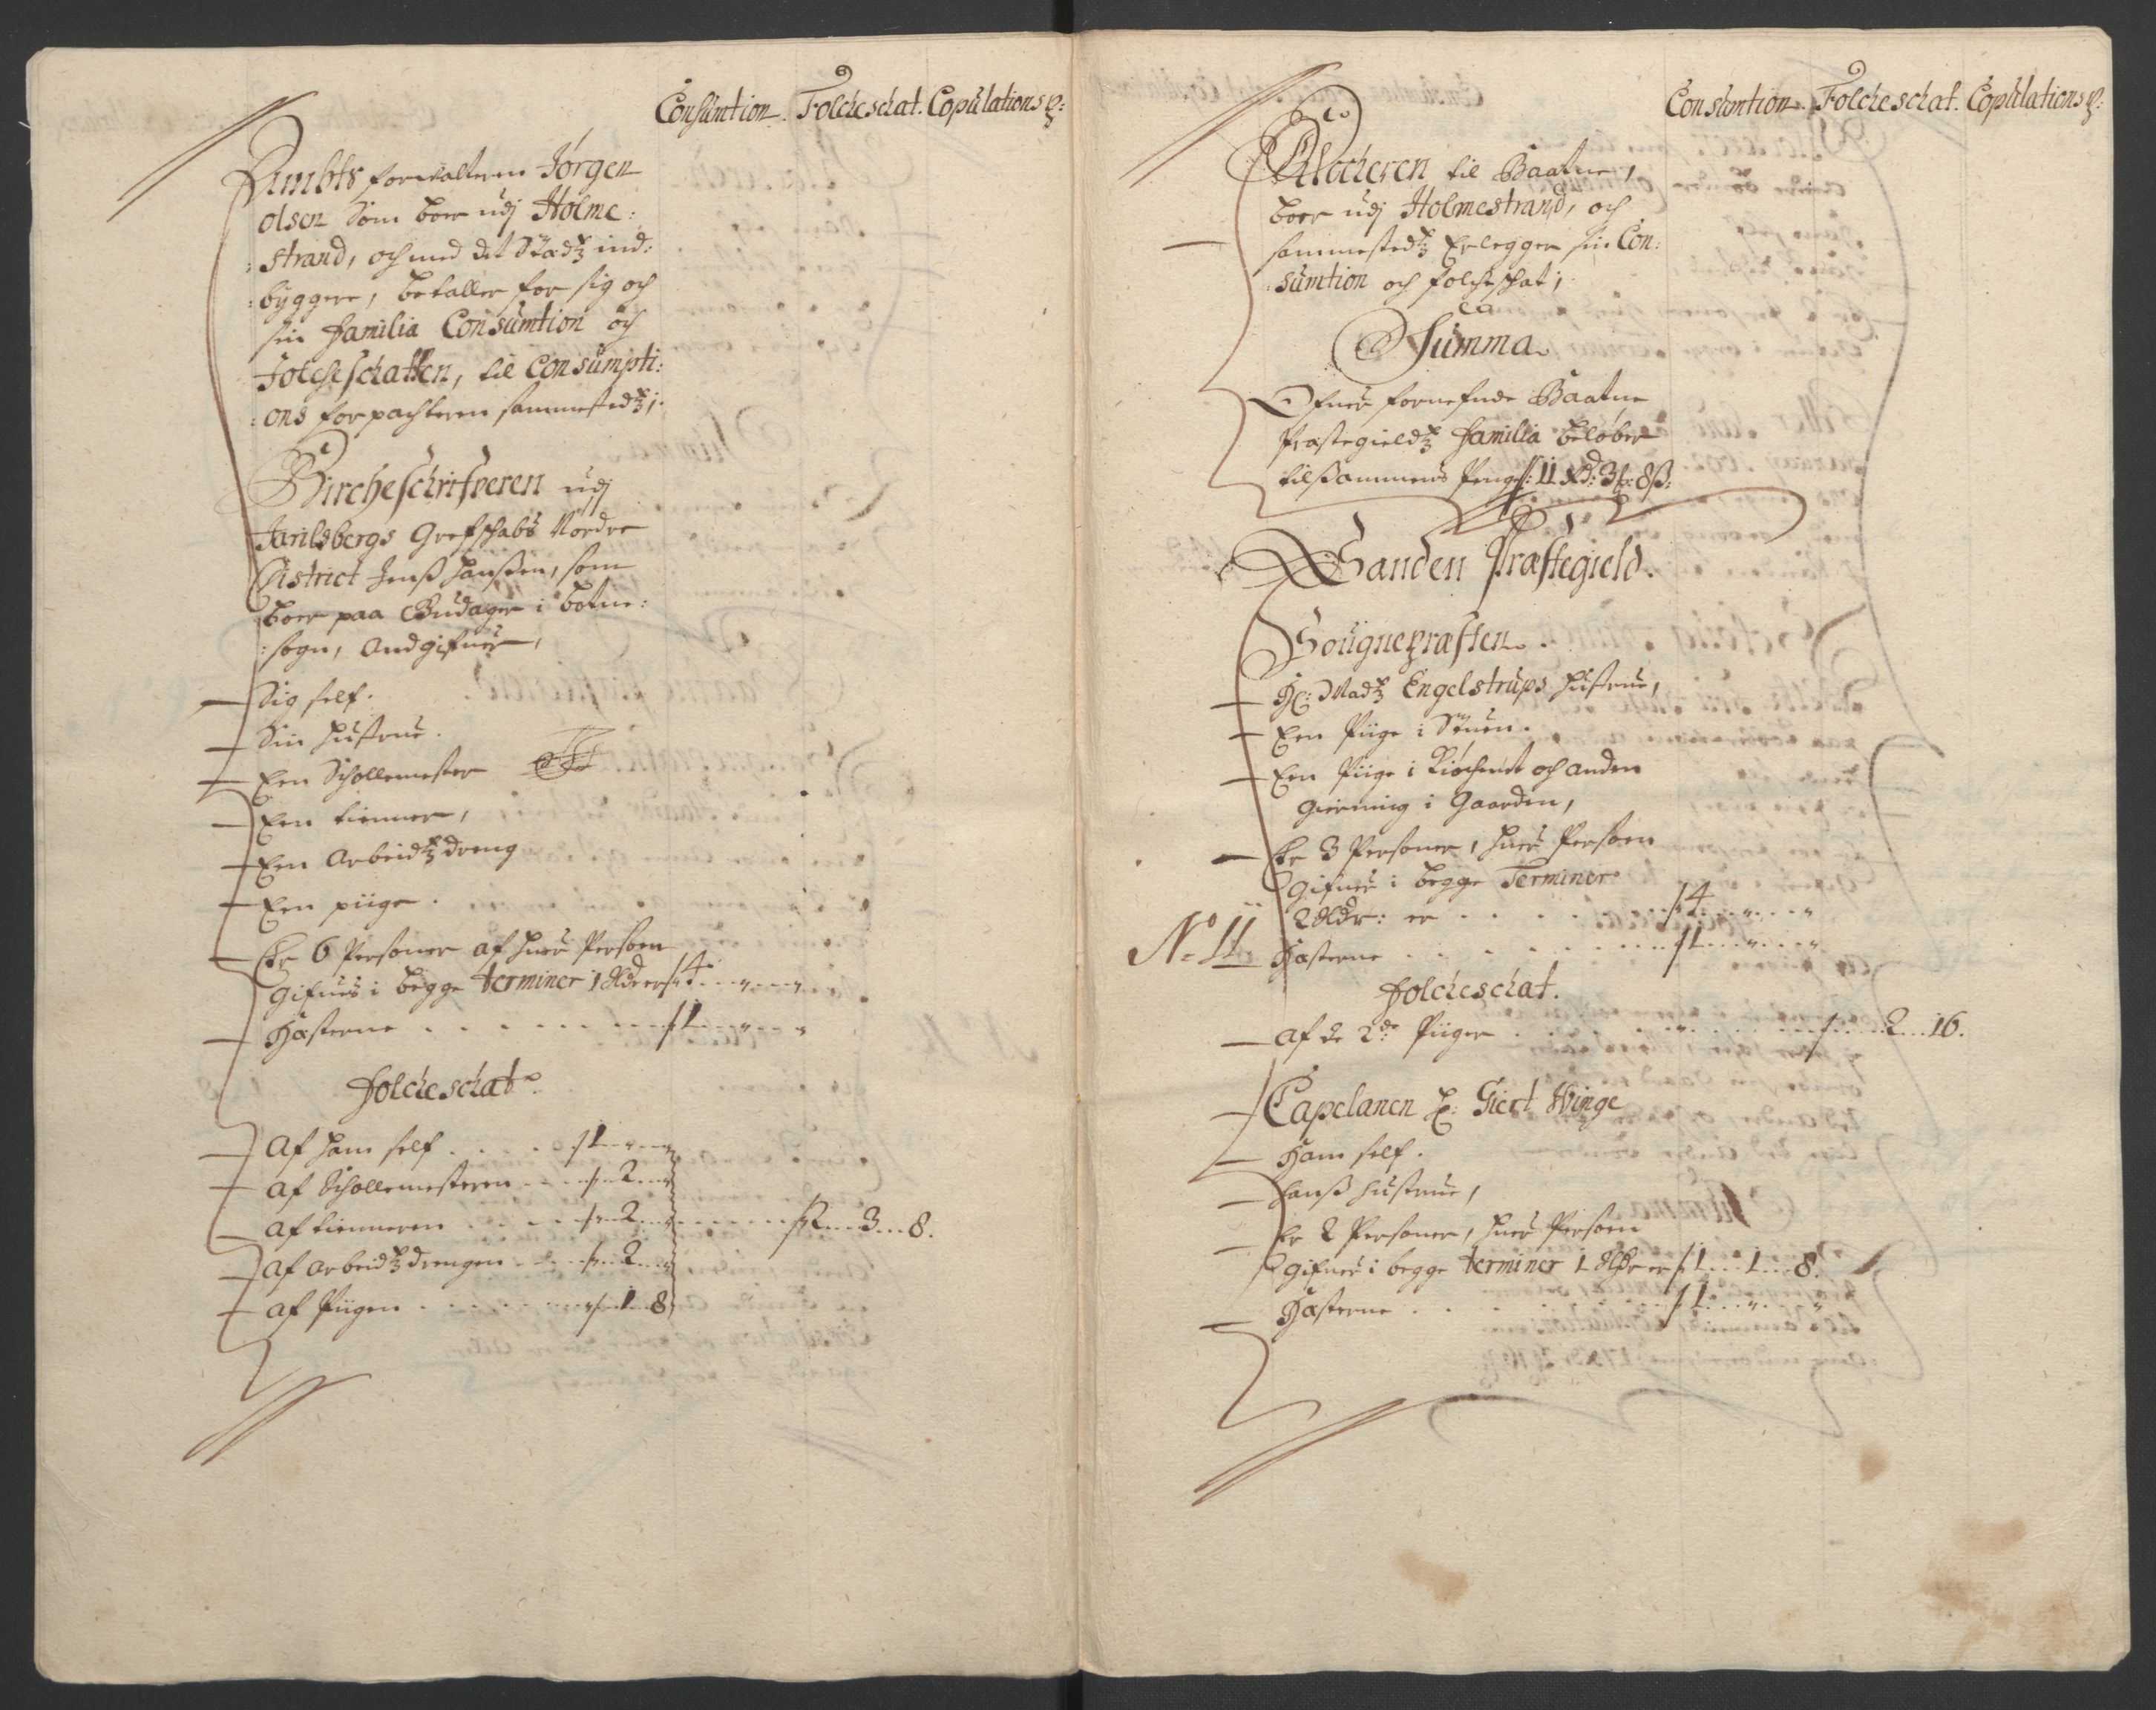 Consumtion. Folcheschat. Copulations p:
Ambts forvalteren Jørgen
olsen som boer udj Holme:
:strand, och med det Stædz ind:
:byggere, betaller for sig och
sin Familia Consumtion och
Folcheschatten, til Consumpti:
:ons forpachteren sammestedz;
Bircheschrifveren udj
Jarlsbergs Grefschabs Nordre
District Jenss Hanssen, som
boer paa Gudager i botne:
:sogn, Andgifver,
Sig self.
Sin hustrue.
Een Schollemester
Een tienner,
Een Arbeidz dreng
Een piige.
Er 6 Personer af huer Person
gifues i begge terminer 1 Rdr er 4 „ „
Hæsterne . . . . . 1 „ „
Folcheschat.
Af ham self . . . . 1 „ „
Af Schollemesteren . . . 2 „
Af tienneren . . . . 2 „ . . . 2 3 8.
Af arbeidz drengen . . . 2 „
Af Piigen . . . . . 1 8
Consumtion. Folcheschat. Copulations p:
Klocheren til Baatne,
boer udj Holmestrand, och
sammestedz Erlegger sin Con:
:sumtion och folcheschat;
Summa
Ofuer fornefnde Baatne
Præstegieldz Familia beløber
tilsammens Penge: 11 Rd: 3 : 8 ß:
Sanden Præstegield.
Sougnepræsten.
Hr: Madz Engelstrups hustrue,
Een Piige i Stuen.
Een Piige i Kiøchenet och anden
gierning i Gaarden,
Er 3 Personer, huer Person
gifuer i begge Terminer
2 Rdr: er . . . . . 4 „ „
No 11. Hæsterne . . . . . 1 „ „
Folcheschat.
Af de 2de Piiger . . . . . 2 16.
Capelanen Hr: Giert Winge
Ham self.
Hanss hustrue,
Er 2 Personer, huer Person
gifuer i begge terminer 1 Rdr er 1 1 8.
Hæsterne . . . . . 1 „ „